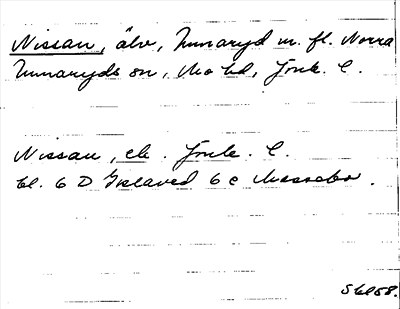 Nissan, älv, Unnaryd m. fl. Norra
Unnaryds sn, Mo hd, Jönk. l.
Nissan, ek. Jönk. l.
bl. 6 D Gislaved 6 C